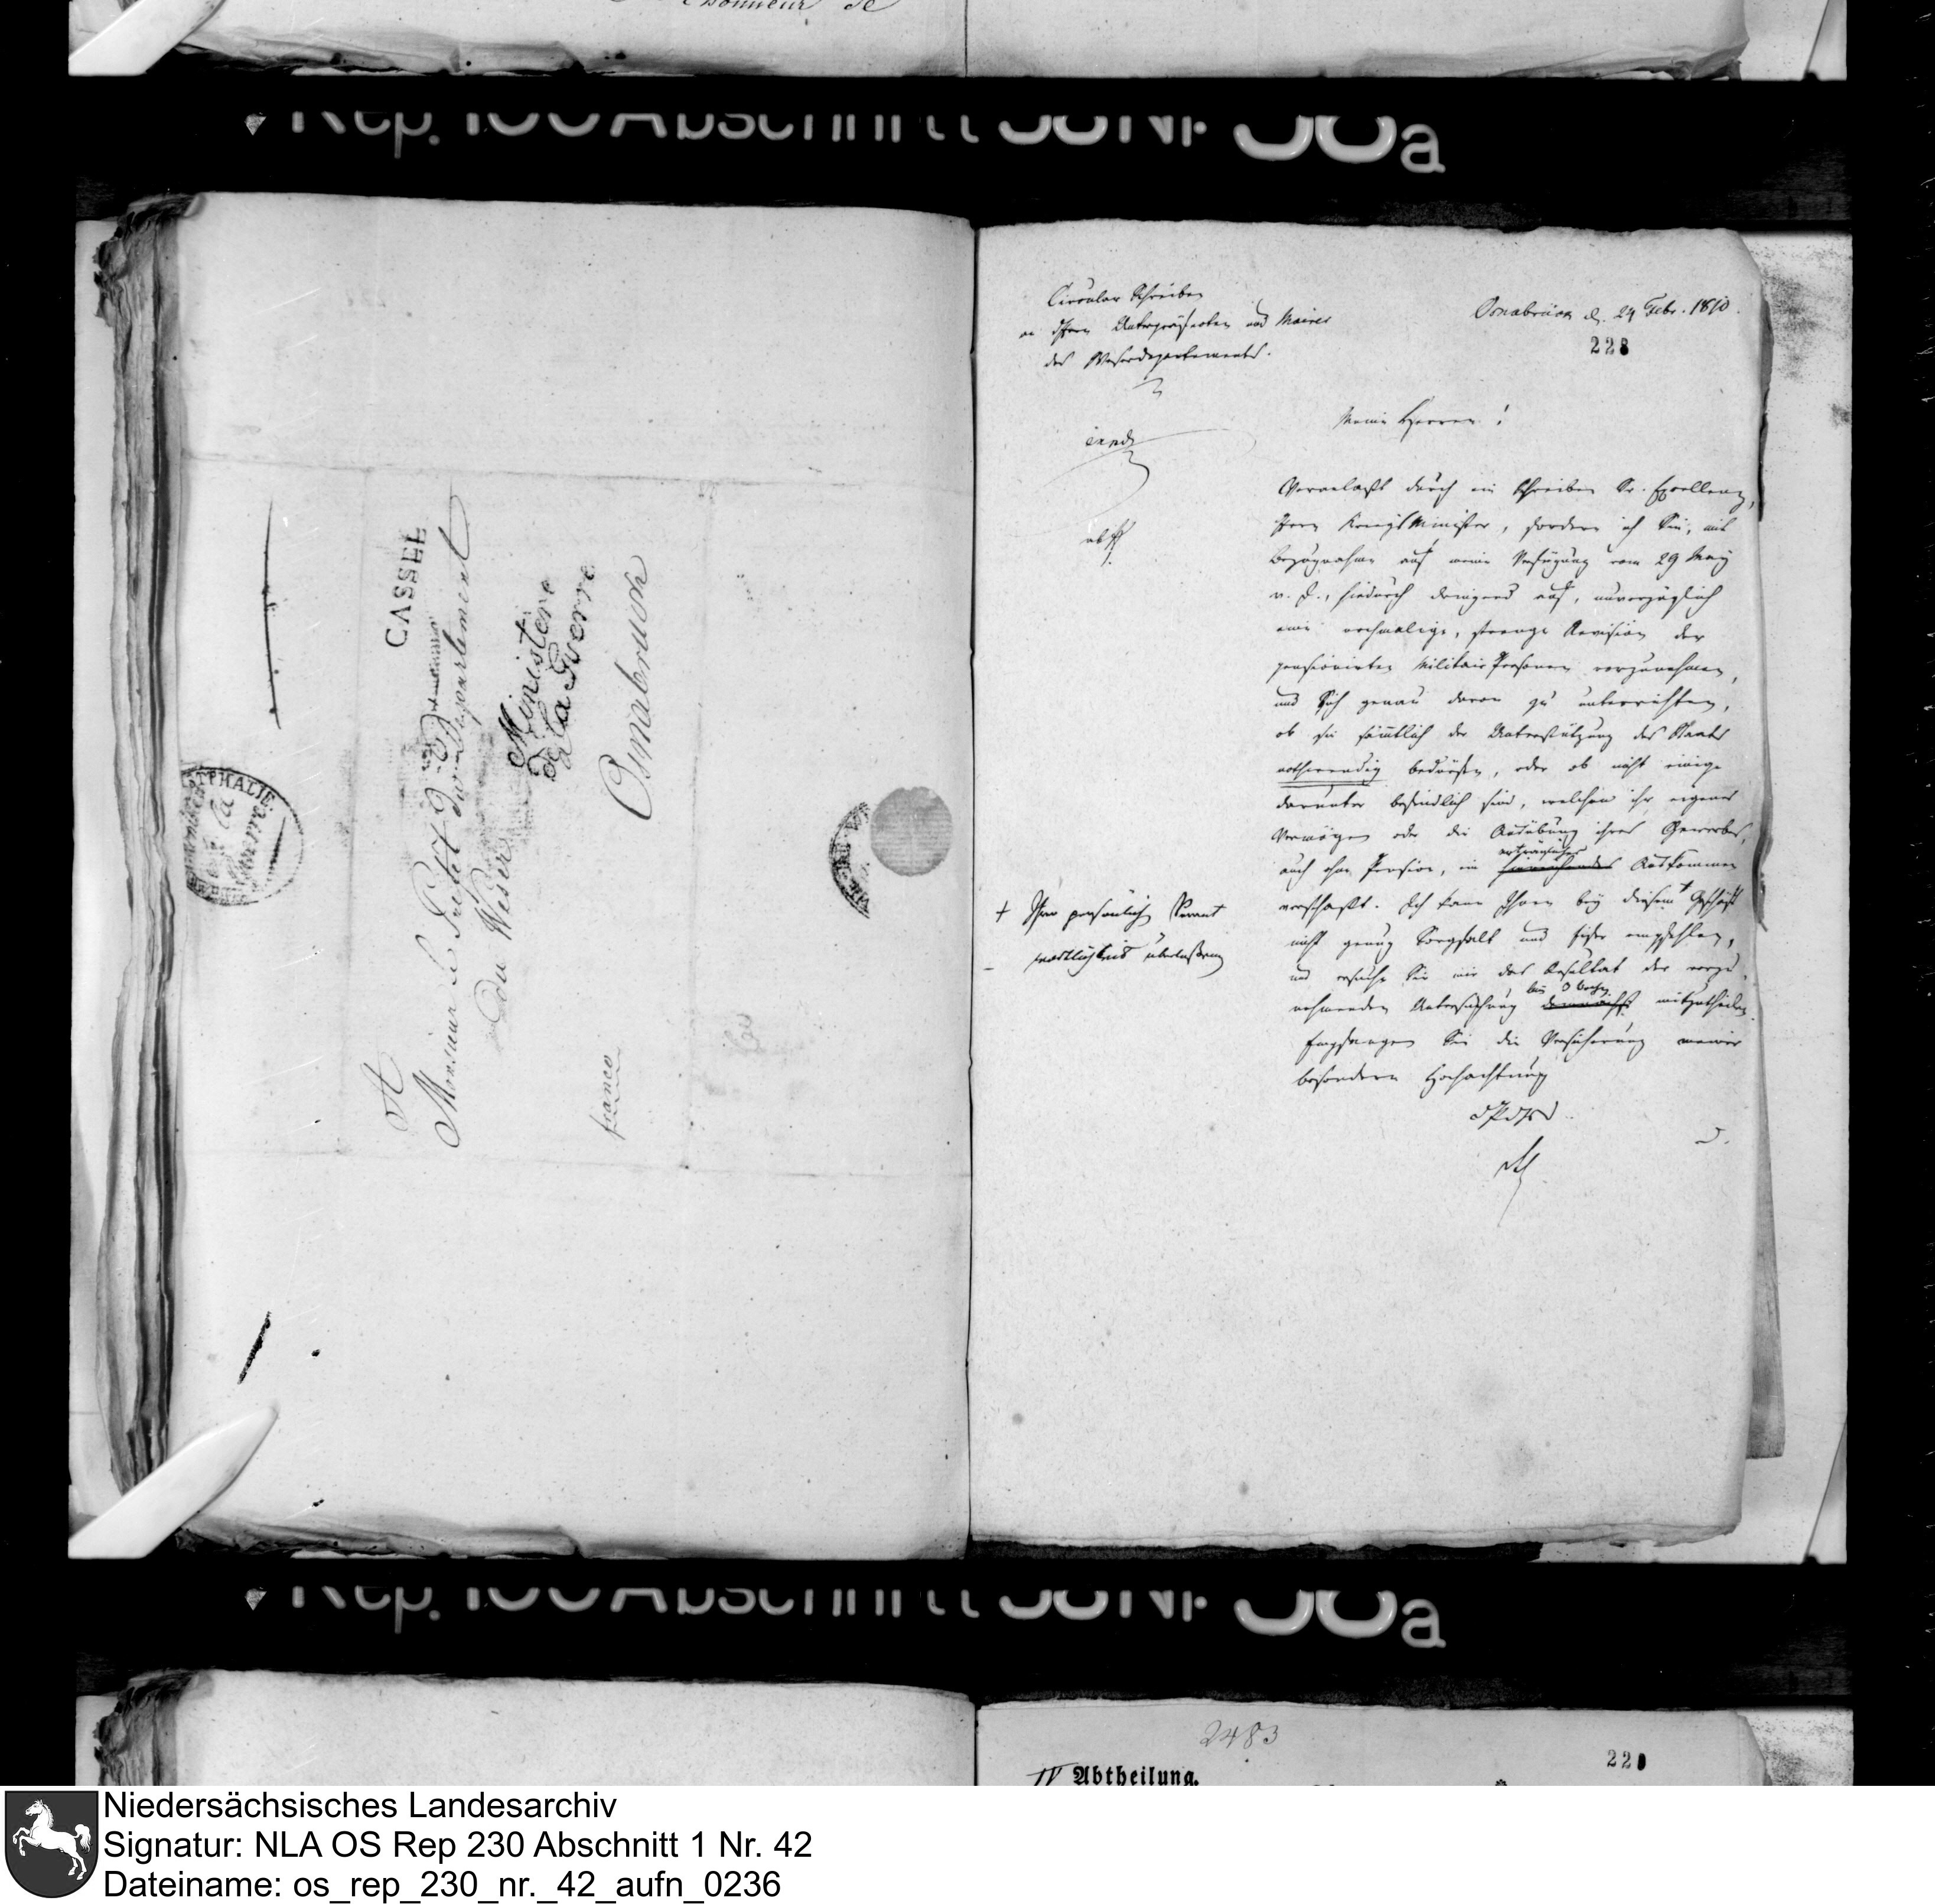 l'honneur de
CASSEL
A
Monsieur le Préfet du Département
du Weser
Ministère
de la Guerre
Osnabruck
franco
STPHALIE
Circular Schreiben
an Herrn Unterpräfecten und Maires
des Weserdepartements.
Osnabrück d. 24 Febr. 1810.
228
Meine Herren!
Veranlaßt durch ein Schreiben Sr. Excellenz,
Herrn KriegsMinister, fordere ich Sie, mit
Bezugnahme auf meine Verfügung vom 29 May
v. J., hiedurch dringend auf, unverzüglich
eine nochmalige, strenge Revision der
pensionirten Militair Personen vorzunehmen,
und Sich genau davon zu unterrichten,
ob sie sämtlich der Unterstützung des Staats
nothwendig bedürfen, oder ob nicht einige
darunter befindlich sind, welchen ihr eigenes
Vermögen oder die Ausübung ihres Gewerbes,
auch ohne Pension, ein erträgliches hinreichendes Auskommen
verschafft. Ich kann Ihnen bey diesem + Geschäft
nicht genug Sorgfalt und empfehlen,
und ersuche Sie mir das Resultat der vorzu-
nehmenden Untersuchung demnächst mitzutheilen.
Empfangen Sie die Versicherung meiner
besondern Hochachtung
+ Ihrer persönlichen Verant
wortlichkeit überlassenen
2483
220
IV Abtheilung.
Niedersächsisches Landesarchiv
Signatur: NLA OS Rep 230 Abschnitt 1 Nr. 42
Dateiname: os_rep_230_nr._42_aufn_0236